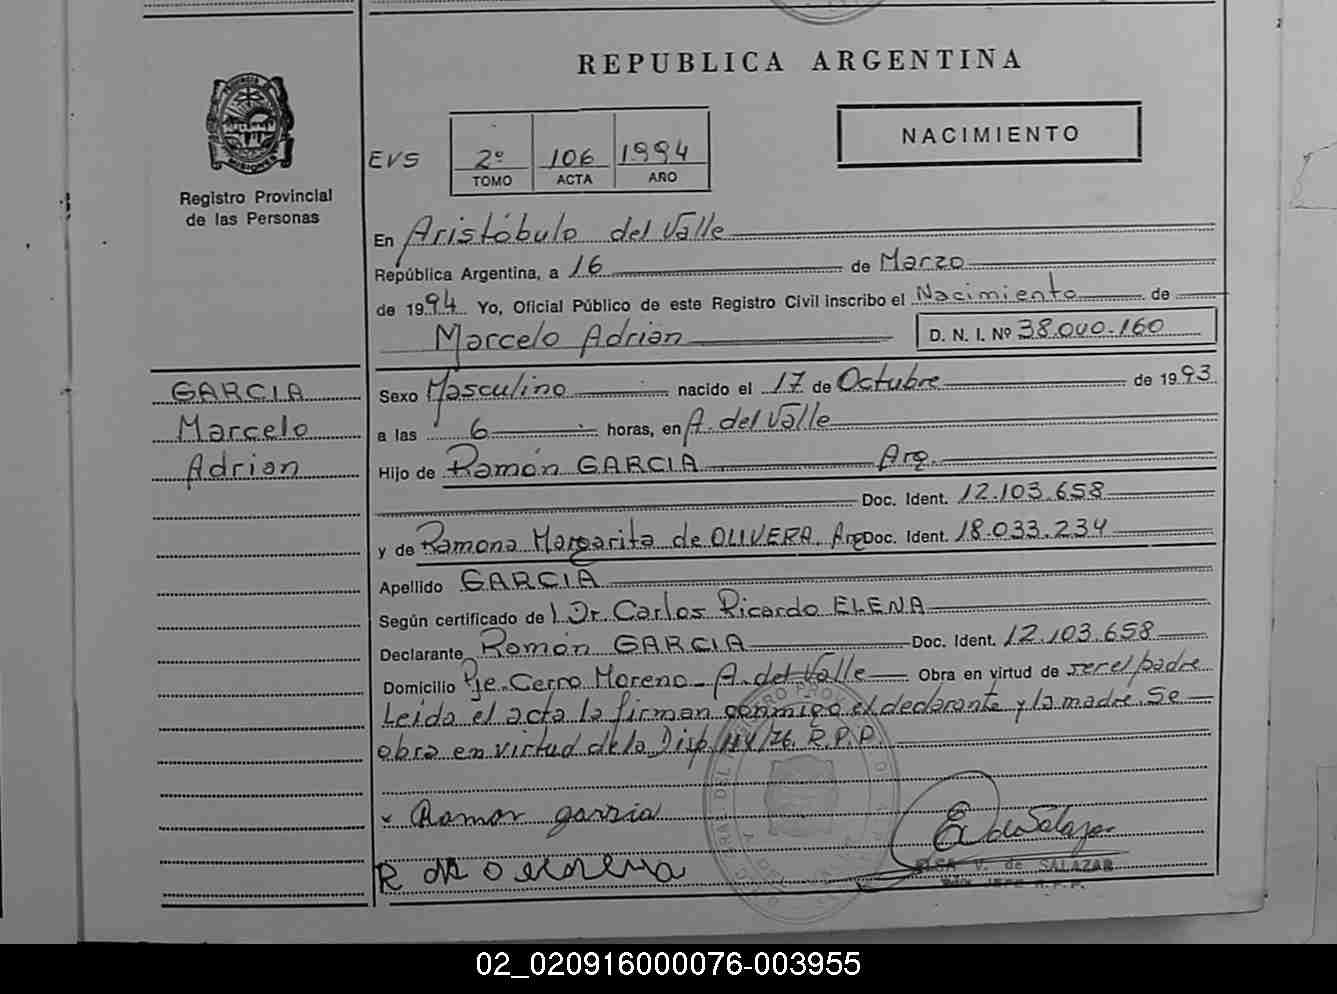 REPUBLICA ARGENTINA
NACIMIENTO
EVS 2º 106 1994
TOMO ACTA AÑO
Registro Provincial
de las Personas
En Aristóbulo del Valle
República Argentina, a 16 de Marzo
de 1994 Yo, Oficial Público de este Registro Civil inscribo el Nacimiento de
Marcelo Adrian D. N. I. Nº 38.040.160
GARCIA
Marcelo
Adrian
Sexo Masculino nacido el 17 de Octubre de 1993
a las 6 horas, en A. del Valle
Hijo de Ramón GARCIA Arg.
Doc. Ident. 12.103.658
y de Ramona Margarita de OLIVERA. Arg Doc. Ident. 18.033.234
Apellido GARCIA
Según certificado de l Dr. Carlos Ricardo ELENA
Declarante Ramón GARCIA Doc. Ident. 12.103.658
Domicilio Pje. Cerro Moreno - A. del Valle Obra en virtud de ser el padre
Leida el acta la firman conmigo el declarante y la madre. Se
obra en virtud de la Disp. R.P.P.
Ramon garsia
R
ELSA V. de SALAZAR
JEFE R.P.P.
02_020916000076-003955